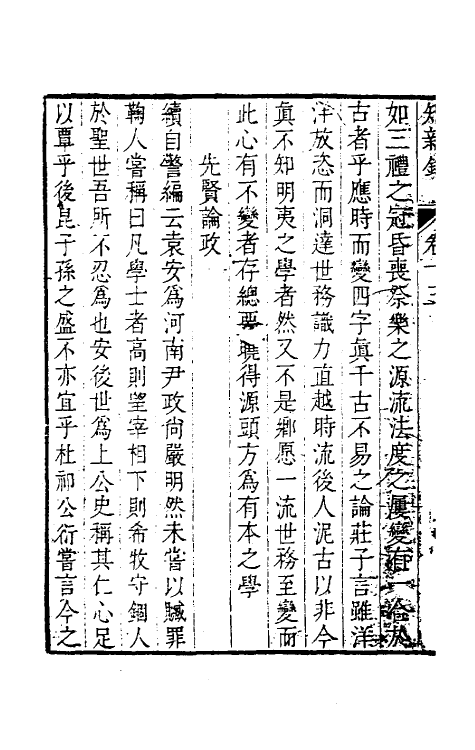 知新錄 卷十三
如三禮之冠昏喪祭樂之源流法度之屢變有一合於
古者乎應時而變四字眞千古不易之論莊子言雖洋
洋放恣而洞達世務識力直越時流後人泥古以非今
眞不知明夷之學者然又不是鄉愿一流世務至變而
此心有不變者存總要曉得源頭方爲有本之學
先賢論政
續自警編云袁安爲河南尹政尚嚴明然未嘗以贓罪
鞠人嘗稱曰凡學士者高則望宰相下則希牧守錮人
於聖世吾所不忍爲也安後世爲上公史稱其仁心足
以覃乎後昆子孫之盛不亦宜乎杜祁公衍嘗言今之